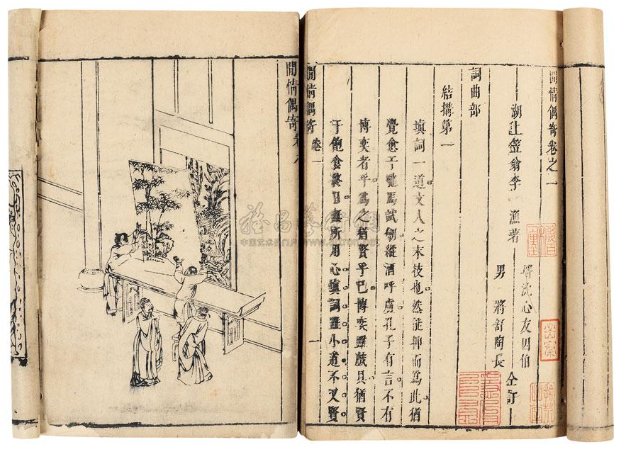 閒情偶寄卷之一
湖上笠翁李 漁著
壻沈心友因伯
男 將舒陶長 仝訂
詞曲部
結構第一
填詞一道文人之末技也然能抑而為此猶
覺愈于馳馬試劍縱酒呼盧孔子有言不有
博奕者乎為之猶賢乎已博奕雖戲具猶賢
于飽食終日無所用心填詞雖小道不又賢
閒情偶寄 卷一
閒情偶寄卷八